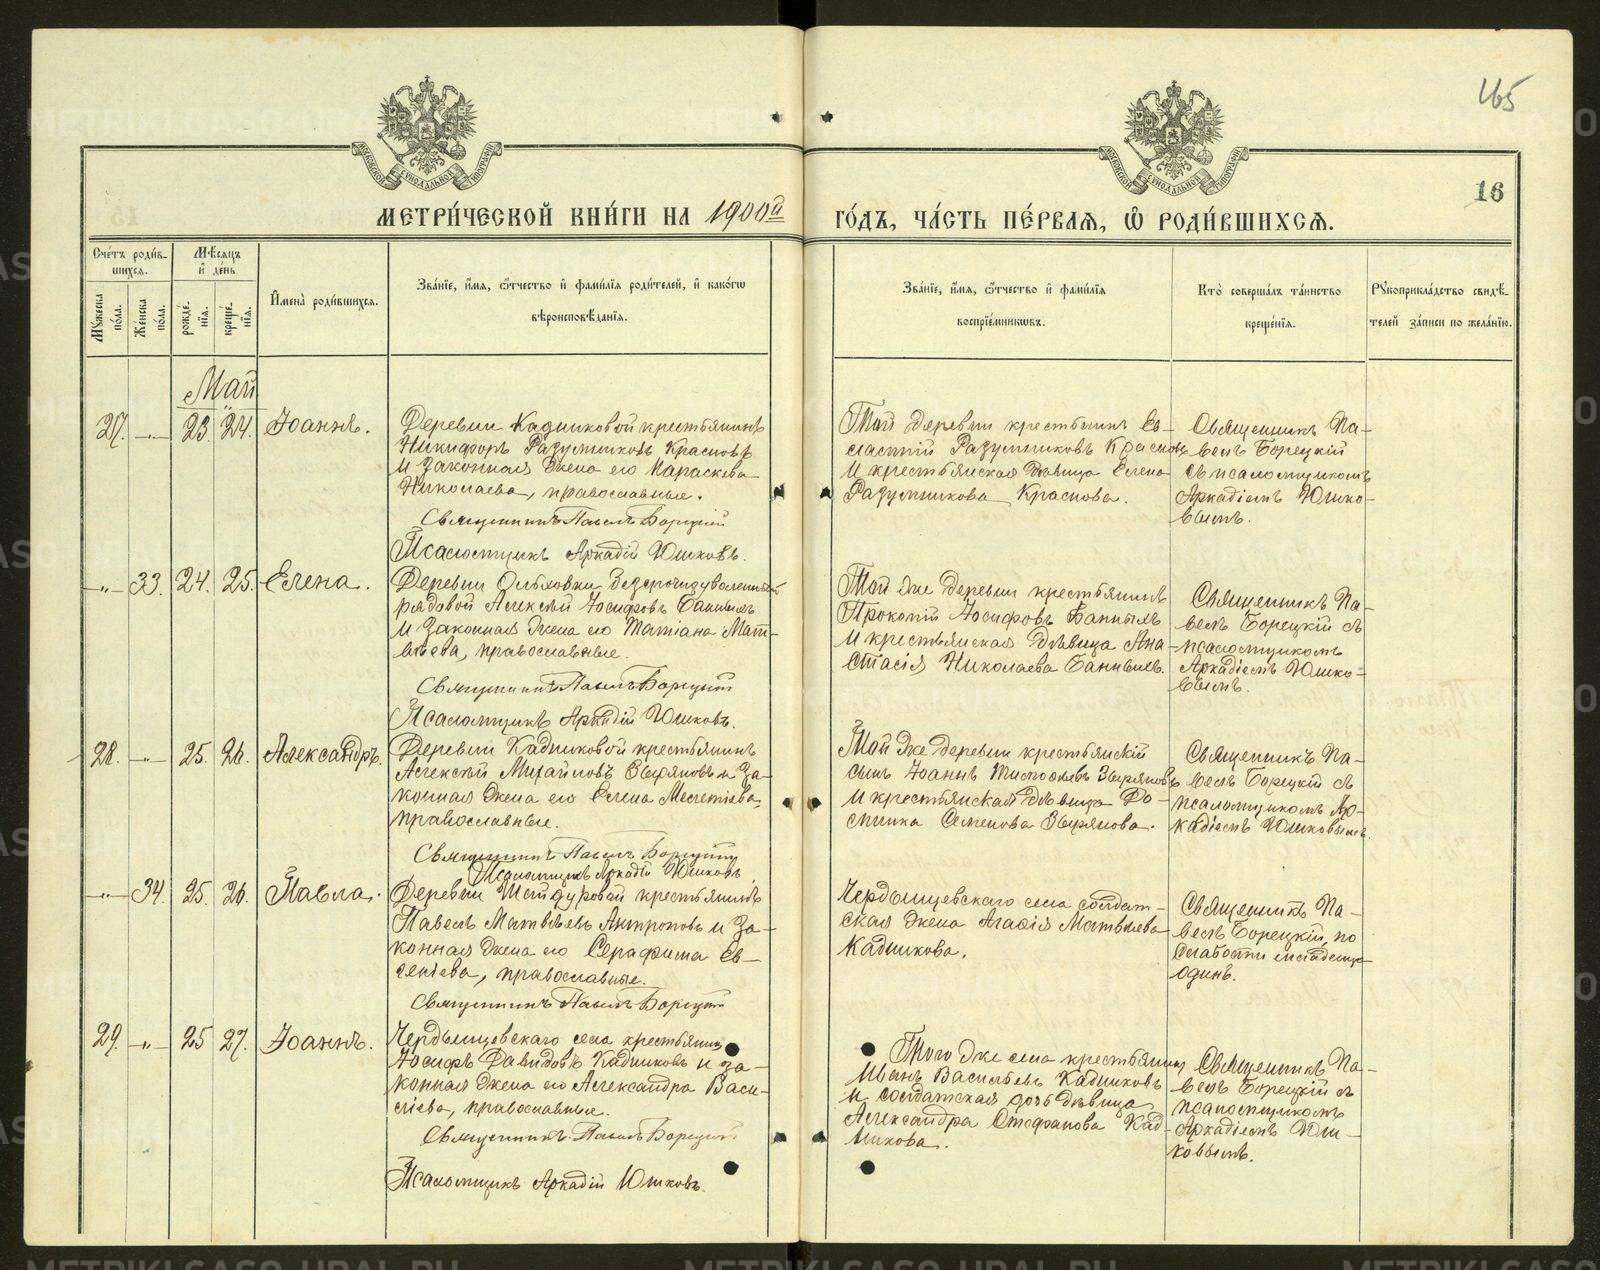 165
16
МЕТРИ́ЧЕСКОЙ КНИ́ГИ НА 1900й ГО́ДЪ, ЧА́СТЬ ПЕ́РВАЯ, Ѡ РОДИ́ВШИХСЯ.
Сче́тъ роди́в-
шихся.
Мꙋ́жеска по́ла.
Же́нска по́ла.
Мѣ́сяцъ
и҆ де́нь
рожде́-
нїя.
креще́-
нїя.
И҆мена̀ роди́вшихся.
Зва́нїе, и҆́мя, ѻ҆́тчество и҆ фами́лїя роди́телей, и҆ како́гѡ
вѣроисповѣ́данїя.
Зва́нїе, и҆́мя, ѻ҆́тчество и҆ фами́лїя
воспрїе́мникѡвъ.
Кто̀ соверша́лъ та́инство
креще́нїя.
Рꙋкоприкла́дство свидѣ́-
телей за́писи по жела́нїю.
Май
27. —„— 23. 24. Іоаннъ.
Деревни Кадниковой крестьянинъ
Никифоръ Разумниковъ Красновъ
и законная жена его Параскева
Николаева, православные.
Священникъ Павелъ Борецкій
Псаломщикъ Аркадій Юшковъ.
Той деревни крестьянинъ Ев-
Разумниковъ Красновъ
и крестьянская дѣвица Елена
Разумникова Краснова.
Священникъ Па-
велъ Борецкій
съ псаломщикомъ
Аркадіемъ Юшко-
вымъ.
—„— 33. 24. 25. Елена.
Деревни Ольховки безсрочноуволенный
рядовой Алексѣй Іосифовъ
и законная жена его Татіана Мат-
вѣева, православные.
Священникъ Павелъ Борецкій
Псаломщикъ Аркадій Юшковъ.
Той же деревни крестьянинъ
Прокопій Іосифовъ
и крестьянская дѣвица Ана-
стасія Николаева
Священникъ Па-
велъ Борецкій съ
псаломщикомъ
Аркадіемъ Юшко-
вымъ.
28. —„— 25. 26. Александръ.
Деревни Кадниковой крестьянинъ
Алексѣй Михайловъ Звѣряновъ и за-
конная жена его Елена Мелетіева,
православные.
Священникъ Павелъ Борецкій
Псаломщикъ Аркадій Юшковъ
Той же деревни крестьянскій
сынъ Іоаннъ Звѣряновъ
и крестьянская дѣвица До-
мника Семенова Звѣрянова.
Священникъ Па-
велъ Борецкій съ
псаломщикомъ Ар-
кадіемъ Юшковымъ.
—„— 34. 25. 26. Павла.
Деревни Шайдуровой крестьянинъ
Павелъ Матвѣевъ Антроповъ и за-
конная жена его Серафима Ев-
геніева, православные.
Священникъ Павелъ Борецкій
Чердынцевскаго села солдат-
ская жена Агафія Матвѣева
Кадникова.
Священникъ Па-
велъ Борецкій, по
слабости младенца
одинъ.
29. —„— 25 27. Іоаннъ.
Чердынцевскаго села крестьянинъ
Іосифъ Давидовъ Кадниковъ и за-
конная жена его Александра Васи-
ліева, православные.
Священникъ Павелъ Борецкій
Псаломщикъ Аркадій Юшковъ.
Того же села крестьянинъ
Иванъ Васильевъ Кадниковъ
и солдатская дочь дѣвица
Александра Стефанова Кад-
никова.
Священникъ Па-
велъ Борецкій съ
псаломщикомъ
Аркадіемъ Юш-
ковымъ.